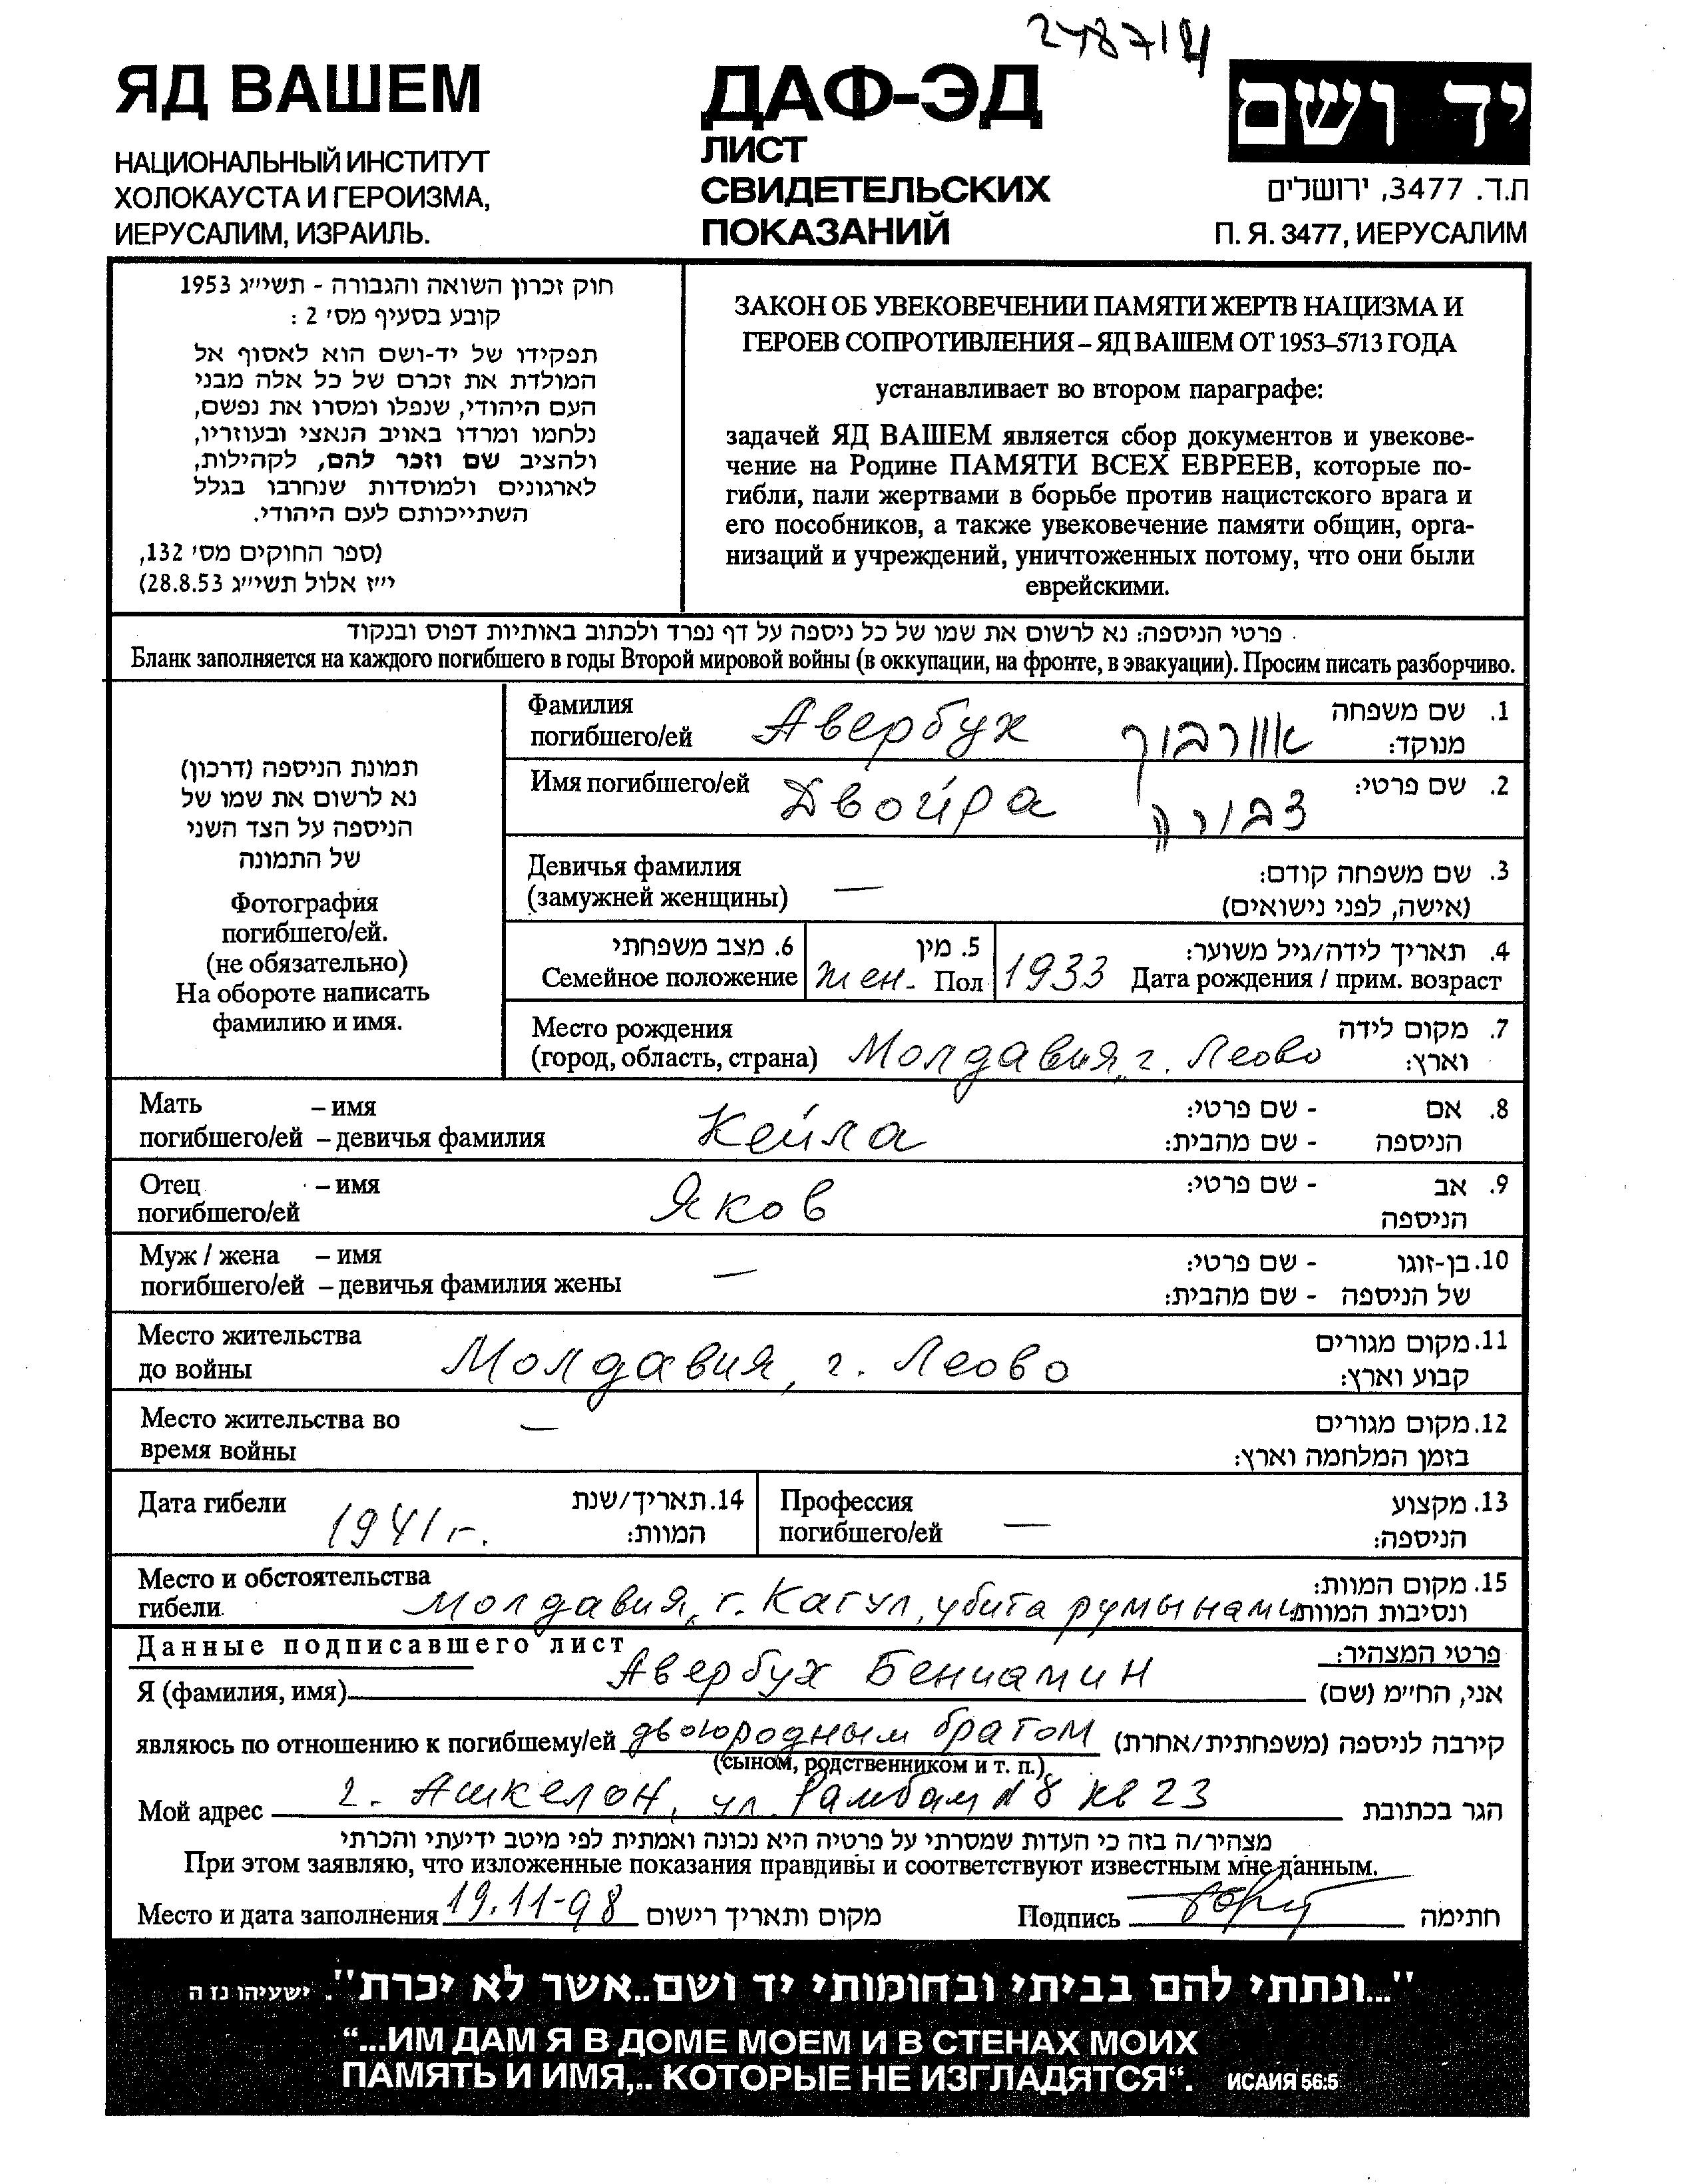 248714
ЯД ВАШЕМ
НАЦИОНАЛЬНЫЙ ИНСТИТУТ
ХОЛОКАУСТА И ГЕРОИЗМА,
ИЕРУСАЛИМ, ИЗРАИЛЬ.
ДАФ-ЭД
ЛИСТ
СВИДЕТЕЛЬСКИХ
ПОКАЗАНИЙ
יד ושם
ת.ד. 3477, ירושלים
П. Я. 3477, ИЕРУСАЛИМ
חוק זכרון השואה והגבורה - תשי״ג 1953
קובע בסעיף מס׳ 2 :
תפקידו של יד-ושם הוא לאסוף אל
המולדת את זכרם של כל אלה מבני
העם היהודי, שנפלו ומסרו את נפשם,
נלחמו ומרדו באויב הנאצי ובעוזריו,
ולהציב שם וזכר להם, לקהילות,
לארגונים ולמוסדות שנחרבו בגלל
השתייכותם לעם היהודי.
(ספר החוקים מס׳ 132,
י״ז אלול תשי״ג 28.8.53)
ЗАКОН ОБ УВЕКОВЕЧЕНИИ ПАМЯТИ ЖЕРТВ НАЦИЗМА И
ГЕРОЕВ СОПРОТИВЛЕНИЯ – ЯД ВАШЕМ ОТ 1953–5713 ГОДА
устанавливает во втором параграфе:
задачей ЯД ВАШЕМ является сбор документов и увекове-
чение на Родине ПАМЯТИ ВСЕХ ЕВРЕЕВ, которые по-
гибли, пали жертвами в борьбе против нацистского врага и
его пособников, а также увековечение памяти общин, орга-
низаций и учреждений, уничтоженных потому, что они были
еврейскими.
פרטי הניספה: נא לרשום את שמו של כל ניספה על דף נפרד ולכתוב באותיות דפוס ובנקוד
Бланк заполняется на каждого погибшего в годы Второй мировой войны (в оккупации, на фронте, в эвакуации). Просим писать разборчиво.
תמונת הניספה (דרכון)
נא לרשום את שמו של
הניספה על הצד השני
של התמונה
Фотография
погибшего/ей.
(не обязательно)
На обороте написать
фамилию и имя.
Фамилия
погибшего/ей Авербух אוורבוך
1. שם משפחה
מנוקד:
Имя погибшего/ей Двойра דבורה 2. שם פרטי:
Девичья фамилия
(замужней женщины) —
3. שם משפחה קודם:
(אישה, לפני נישואים)
6. מצב משפחתי
Семейное положение
5. מין
жен. Пол
4. תאריך לידה/גיל משוער:
1933 Дата рождения / прим. возраст
Место рождения
(город, область, страна) Молдавия, г. Леово
7. מקום לידה
וארץ:
Мать – имя
погибшего/ей – девичья фамилия Кейла
8. אם - שם פרטי:
הניספה - שם מהבית:
Отец – имя
погибшего/ей Яков
9. אב - שם פרטי:
הניספה
Муж / жена – имя
погибшего/ей – девичья фамилия жены —
10. בן-זוגו - שם פרטי:
של הניספה - שם מהבית:
Место жительства
до войны Молдавия, г. Леово
11. מקום מגורים
קבוע וארץ:
Место жительства во
время войны —
12. מקום מגורים
בזמן המלחמה וארץ:
Дата гибели 1941 г.
14. תאריך/שנת
המוות:
Профессия
погибшего/ей —
13. מקצוע
הניספה:
Место и обстоятельства
гибели Молдавия, г. Кагул, убита румынами
15. מקום המוות:
ונסיבות המוות:
Данные подписавшего лист
פרטי המצהיר:
Я (фамилия, имя) Авербух Бениамин אני, הח״מ (שם)
являюсь по отношению к погибшему/ей двоюродным братом קירבה לניספה (משפחתית/אחרת)
(сыном, родственником и т. п.)
Мой адрес г. Ашкелон, ул. Рамбам 8 кв 23 הגר בכתובת
מצהיר/ה בזה כי העדות שמסרתי על פרטיה היא נכונה ואמתית לפי מיטב ידיעתי והכרתי
При этом заявляю, что изложенные показания правдивы и соответствуют известным мне данным.
Место и дата заполнения 19.11-98 מקום ותאריך רישום
Подпись חתימה
"...ונתתי להם בביתי ובחומותי יד ושם..אשר לא יכרת". ישעיהו נז ה
“...ИМ ДАМ Я В ДОМЕ МОЕМ И В СТЕНАХ МОИХ
ПАМЯТЬ И ИМЯ,.. КОТОРЫЕ НЕ ИЗГЛАДЯТСЯ“. ИСАИЯ 56:5